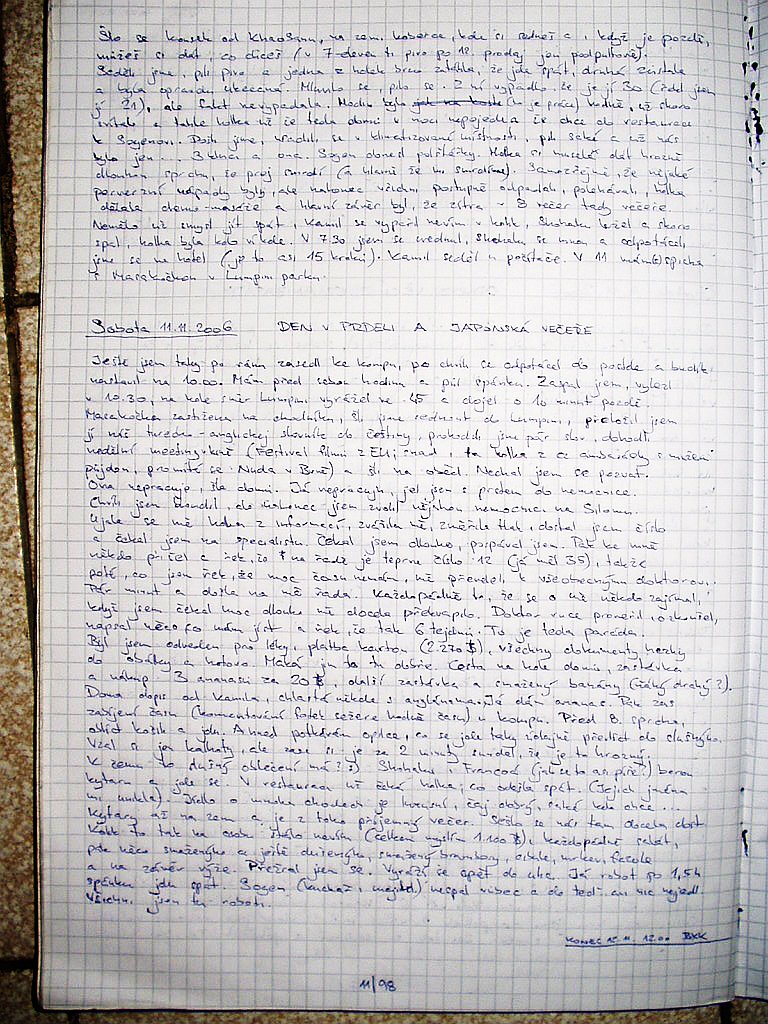 Šlo se kousek od Khaosanu, na zemi koberce, kde si sedneš a i když je pozdě,
můžeš si dát, co chceš (v 7-eleven ti pivo po 12. prodaj jen podpultově).
Seděli jsme, pili pivo a jedna z holek brzo zatáhla, že jde spát, druhá zůstala
a byla opravdu ukecaná. Mluvilo se, pilo se. Z ní vypadlo, že je jí 30 (řekl jsem
jí 21), ale fakt nevypadala. Mezitím bylo (to je práce) hodně, už skoro
svítalo a tahle holka už že teda domů v noci nepojede a že chce do restaurace
k Sogenovi. Došli jsme, usadili se v klimatizovaný místnosti, pili saké a už nás
bylo jen... 3 kluci a ona. Sogen donesl polštářky. Holka si musela dát hrozně
dlouhou sprchu, že prej smrdí (a hlavně že my smrdíme). Samozřejmě, že nějaké
perverzní nápady byly, ale nakonec všichni postupně odpadali, polehávali, holka
dělala demo-masáže a hlavní závěr byl, že zítra v 8 večer tady večeře.
Nemělo už smysl jít spát, Kamil se vypařil nevím v kolik, Shohaku ležel a skoro
spal, holka byla kdo ví kde. V 7.30 jsem se zvednul, Shohaku se mnou a odpotáceli
jsme se na hotel (je to asi 15 kroků). Kamil seděl u počítače. V 11 mám sraz
s Masakočkou v Lumpini parku.
Sobota 11.11.2006 DEN V PRDELI A JAPONSKÁ VEČEŘE
Ještě jsem taky po ránu zasedl ke kompu, po chvíli se odpotácel do postele a budík
nastavil na 10.00. Mám před sebou hodinu a půl spánku. Zaspal jsem, vylezl
v 10.30, na kole směr Lumpini vyrážel ve 45 a dojel o 10 minut pozdě.
Masakočka zastižena na chodníku, šli jsme sednout do Lumpini, přeložil jsem
jí náš turecko-anglickej slovník do češtiny, prokecli jsme pár slov, dohodli
nedělní meeting v kině (Festival filmů z EU, snad i ta holka z cz ambasády s mužem
přijdou, promítá se Nuda v Brně) a šli na oběd. Nechal jsem se pozvat.
Ona nepracuje, šla domů. Já nepracuju, jel jsem s prstem do nemocnice.
Chvíli jsem bloudil, ale nakonec jsem zvolil nějakou nemocnici na Silomu.
Ujala se mě holka z informací, zvážila mě, změřila tlak, dostal jsem číslo
a čekal jsem na specialistu. Čekal jsem dlouho, pospával jsem. Pak ke mně
někdo přišel a řek, že na řadě je teprve číslo 12 (já měl 35), takže
poté, co jsem řek, že moc času nemám, mě převeleli k všeobecnýmu doktorovi.
Pár minut a došla na mě řada. Každopádně to, že se o mě někdo zajímal,
když jsem čekal moc dlouho mě docela překvapilo. Doktor ruce promnul, ozkoušel,
napsal něco co mám jíst a řek, že tak 6 tejdnů. To je teda paráda.
Byl jsem odveden pro léky, platba kartou (2.270 ฿), všechny dokumenty hezky
do obálky a hotovo. Makaj jim to tu dobře. Cesta na kole domů, zastávka
a nákup 3 ananasů za 20 ฿, další zastávka a smažený banány (ňáký drahý?).
Doma dopis od Kamila, chlastá někde s angličanama. Já dám ananas. Pak zas
zabíjení času (komentování fotek sežere hodně času) u kompu. Před 8. sprcha,
oblíct a jdu. A hned potkávám oprdce, co se jde taky údajně převlíct do slušnýho.
Vzal si jen kalhoty, ale zase si je za 2 minuty sundal, že je to hroznýj
K čemu to slušný oblečení má?:) Shohaku i Francoá (jak se to asi píše?) berou
kytaru a jde se. V restauraci už čeká holka, co odešla spát. (Jejich jména
mi unikla). Jídlo o mnoha chodech je luxusní, čaj dobrý, saké kdo chce...
Kytary až na zem a je z toho příjemný večer. Sešlo se nás tam docela dost.
Kolik to tak na osobu stálo nevím (celkem myslím 1.100 ฿), každopádně salát,
pak něco smaženýho a ještě dušenýho, smažený brambory, cibule, mrkev, fazole
a na závěr rýže. Přežral jsem se. Vyráží se opět do ulic. Já robot po 1,5h
spánku jdu spát. Sogen (kuchař, majitel) nespal vůbec a do teď ani nic nejedl.
Všichni jsou tu roboti.
KONEC 12.11. 12.00 BKK
11/98